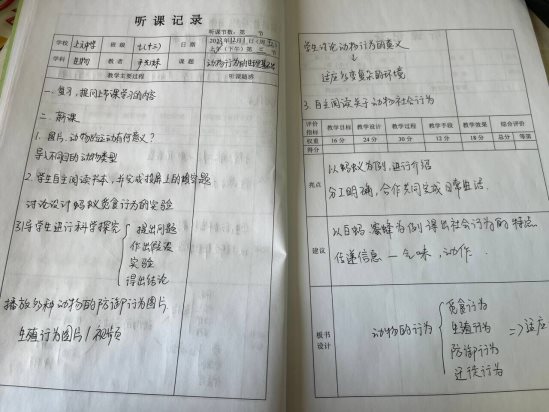 听课记录
听课节数：第 节
学校 上元中学 班级 七(十三) 日期 2023年12月1日(周五)
上午(下午)第三节
学科 生物 教者 课题 动物行为的
教学主要过程 听课随感
一、复习，提问上节课学习的内容
二、新课
1. 图片，动物的运动有何意义？
导入不同的动物类型
2. 学生自主阅读书本，并完成投屏上的填空题
讨论设计蚂蚁觅食行为的实验
引导学生进行科学探究
提出问题
作出假设
实验
得出结论
播放多种动物的防御行为图片
生殖行为图片/视频
学生讨论动物行为的意义
↓
适应多变复杂的环境
3. 自主阅读关于动物社会行为
评价指标 教学目标 教学设计 教学过程 教学手段 教学效果 综合评价
权重 16分 24分 30分 12分 18分 总分 等第
得分
亮点
以蚂蚁为例，进行介绍
分工明确，合作共同完成日常生活.
建议
以白蚂 蜜蜂为例 得出社会行为的特点
传递信息 — 气味，动作.
板书设计
动物的行为
觅食行为
生殖行为
防御行为
迁徙行为
=> 适应